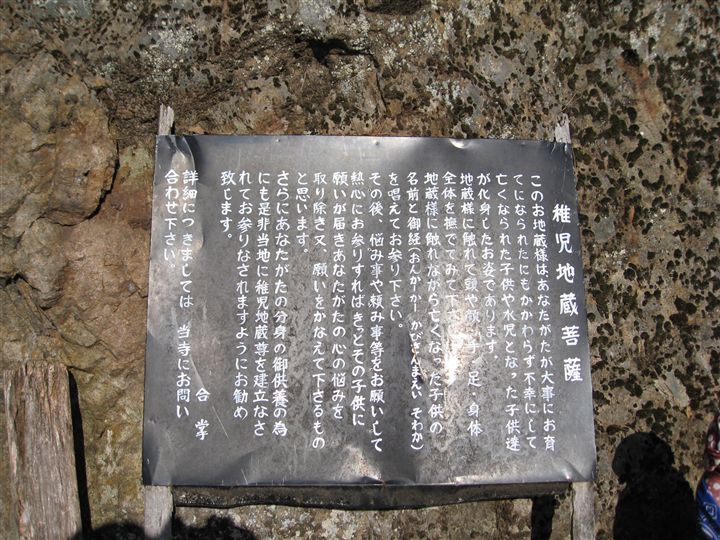 稚児地蔵菩薩
このお地蔵様は、あなたがたが大事にお育
てになられたにもかかわらず不幸にして
亡くなられた子供や水児となった子供達
が化身したお姿であります。
地蔵様に触れて頭や 足・身体
全体を撫でてみて下さ
地蔵様に触れながら亡くなった子供の
名前と御経(おんかーかー かびさんまえい そわか)
を唱えてお参り下さい。
その後、悩み事や頼み事等をお願いして
熱心にお参りすればきっとその子供に
願いが届きあなたがたの心の悩みを
取り除き又、願いをかなえて下さるもの
と思います。
さらにあなたがたの分身の御供養の為
にも是非当地に稚児地蔵尊を建立なさ
れてお参りなされますようにお勧め
致します。
合掌
詳細につきましては 当寺にお問い
合わせ下さい。